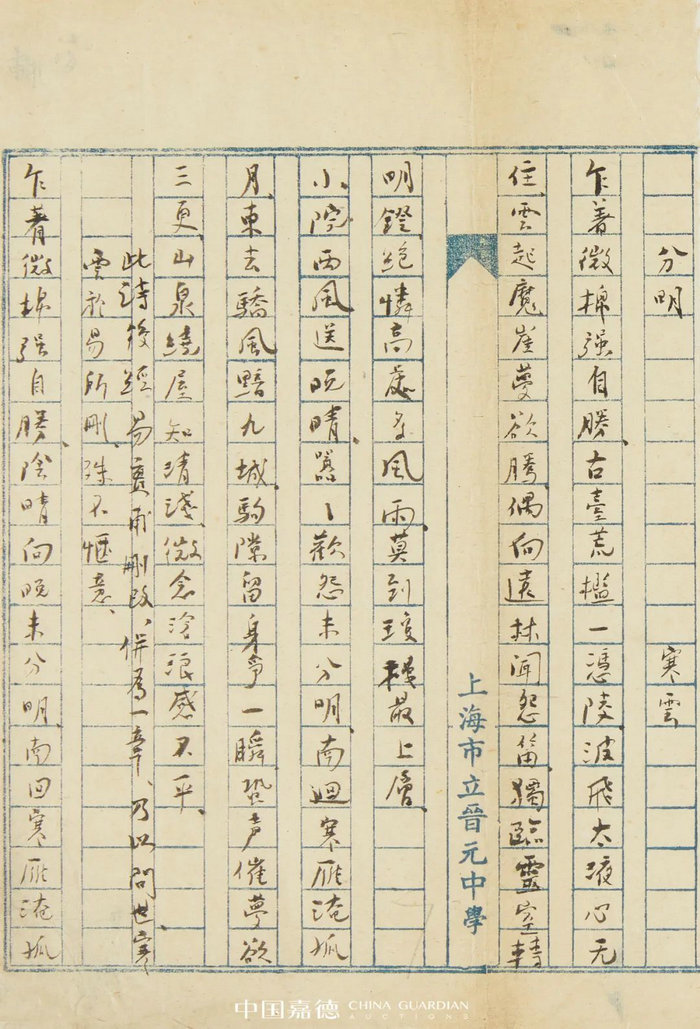 分明 寒雲
乍著微棉强自勝、古臺荒檻一憑陵、波飛太液心无
住、雲起魔崖夢欲騰、偶向遠林聞怨笛、獨臨靈室轉
上海市立晉元中學
明鐙、絶憐高處多風雨、莫到瓊樓最上層、
小院西風送晚晴、嚣丶歡怨未分明、南迴寒雁淹孤
月、東去驕風黯九城、駒隙留身争一瞬、蛩声催夢欲
三更、山泉繞屋知清淺、微念滄浪感不平、
此詩後經易實甫刪改、併為一章、乃以問世、寒
雲於易所刪、殊不愜意、
乍著微棉强自勝、陰晴向晚未分明、南回寒雁淹孤
中国嘉德 CHINA GUARDIAN
AUCTIONS